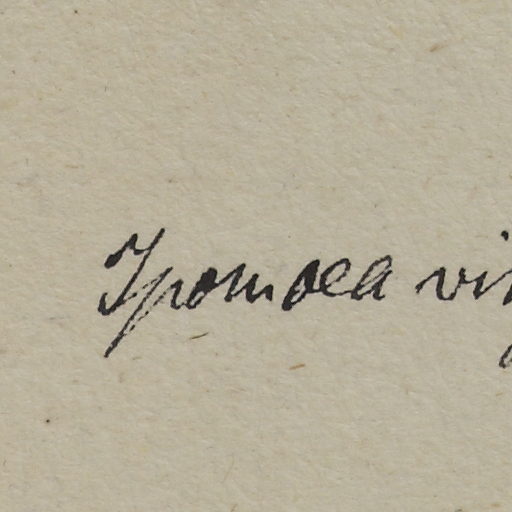 Ipomoea vi